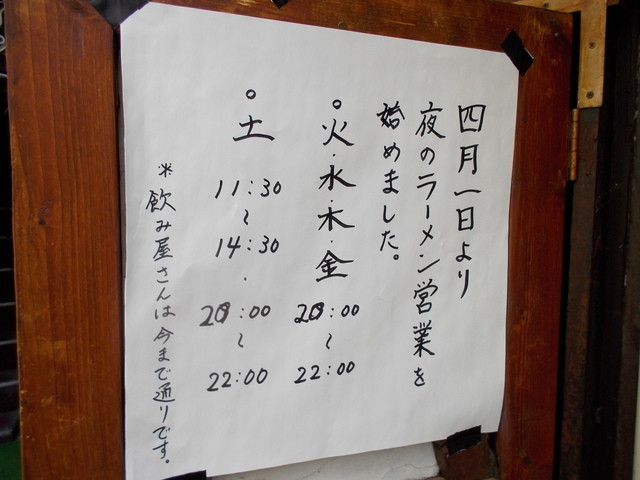 四月一日より
夜のラーメン営業を
始めました。
○火・水・木・金
20:00
～
22:00
○土
11:30
～
14:30
・
20:00
～
22:00
※飲み屋さんは今まで通りです。